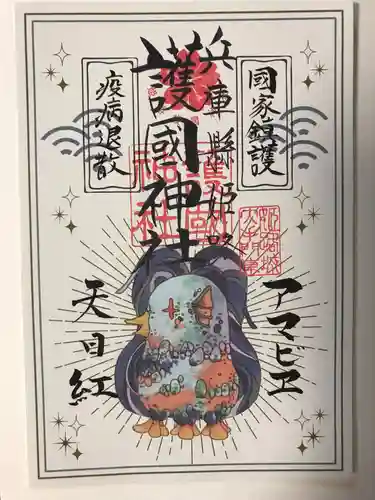 國家鎮護
兵庫縣姫路
護國神社
疫病退散
アマビヱ
天目紅